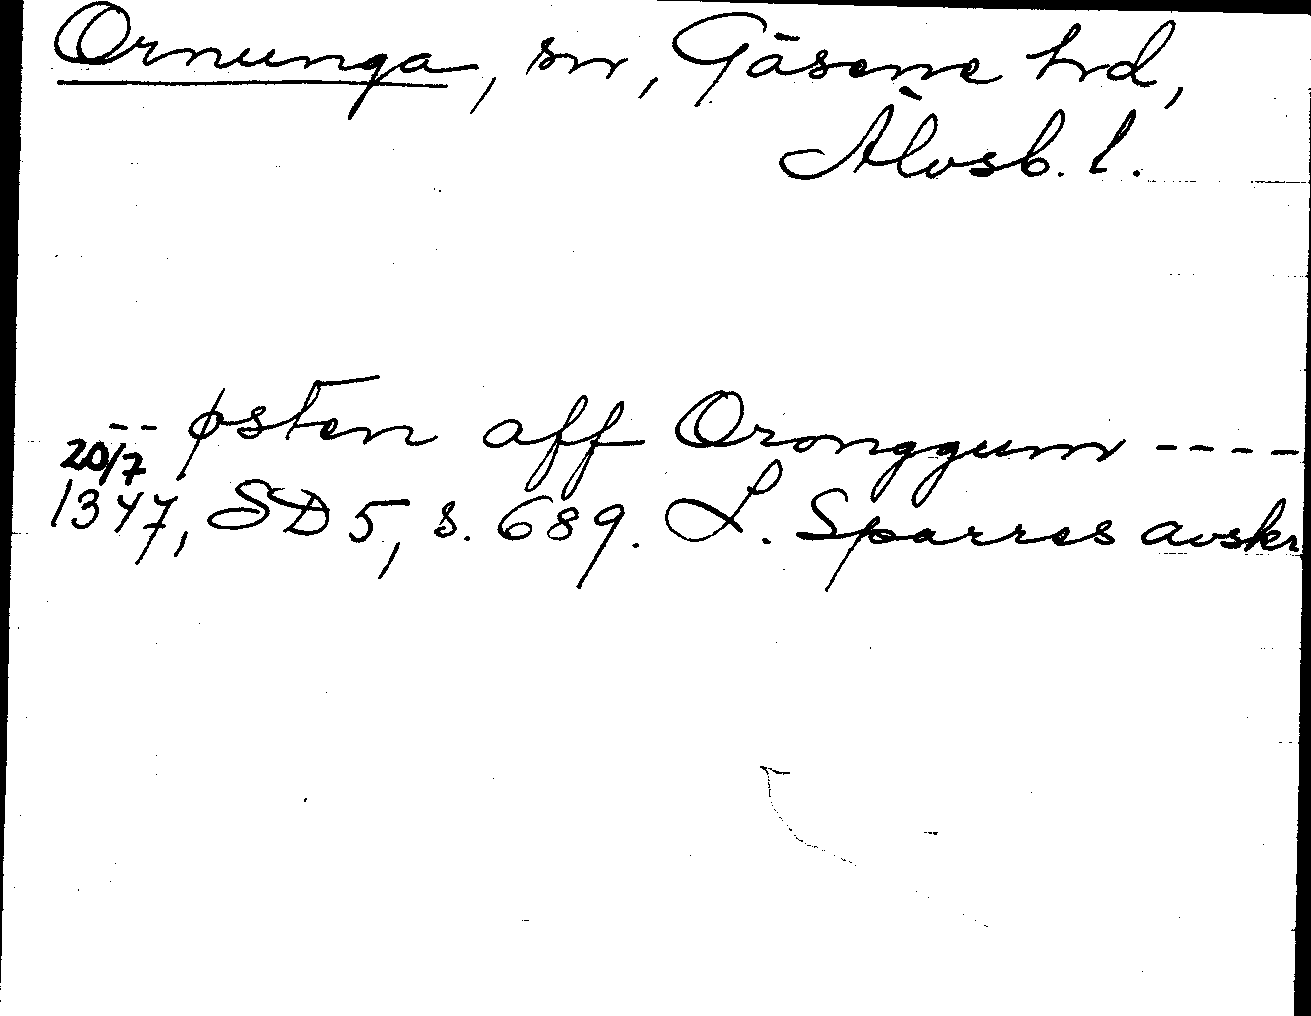 Ornunga, sn, Gäsene hrd,
Älvsb. l.
-- østen aff Oronggum ----
20/7
1347, SD 5, s. 689. L. Sparres avskr.